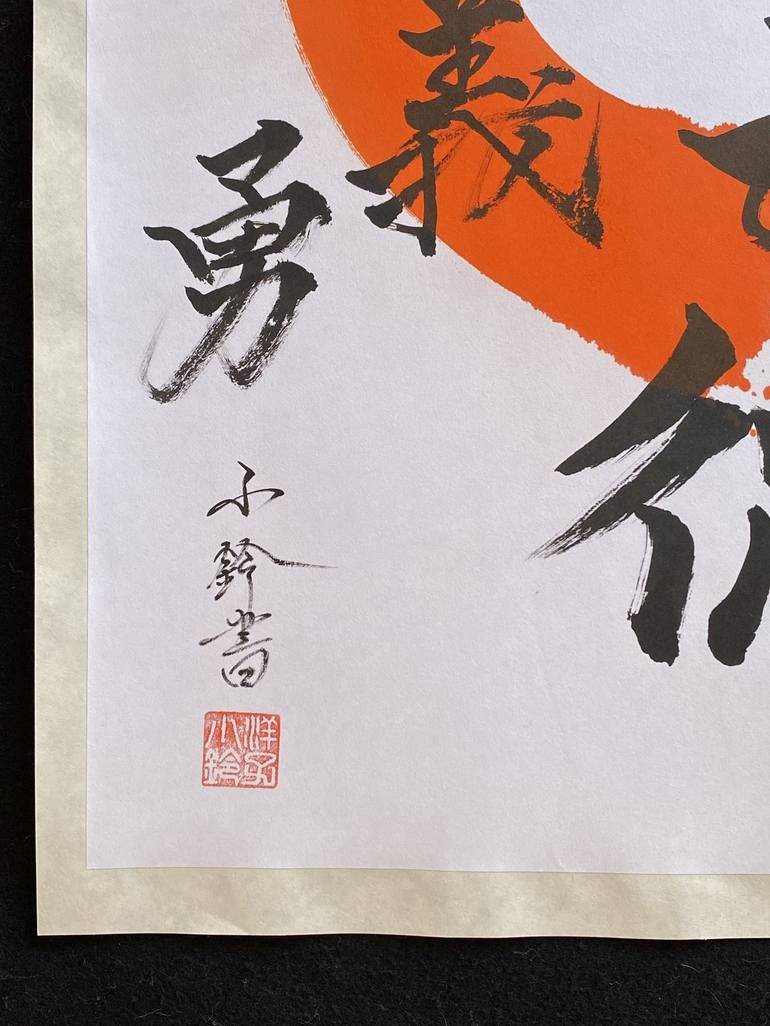 義
勇
小鈴書
洋子
小鈴